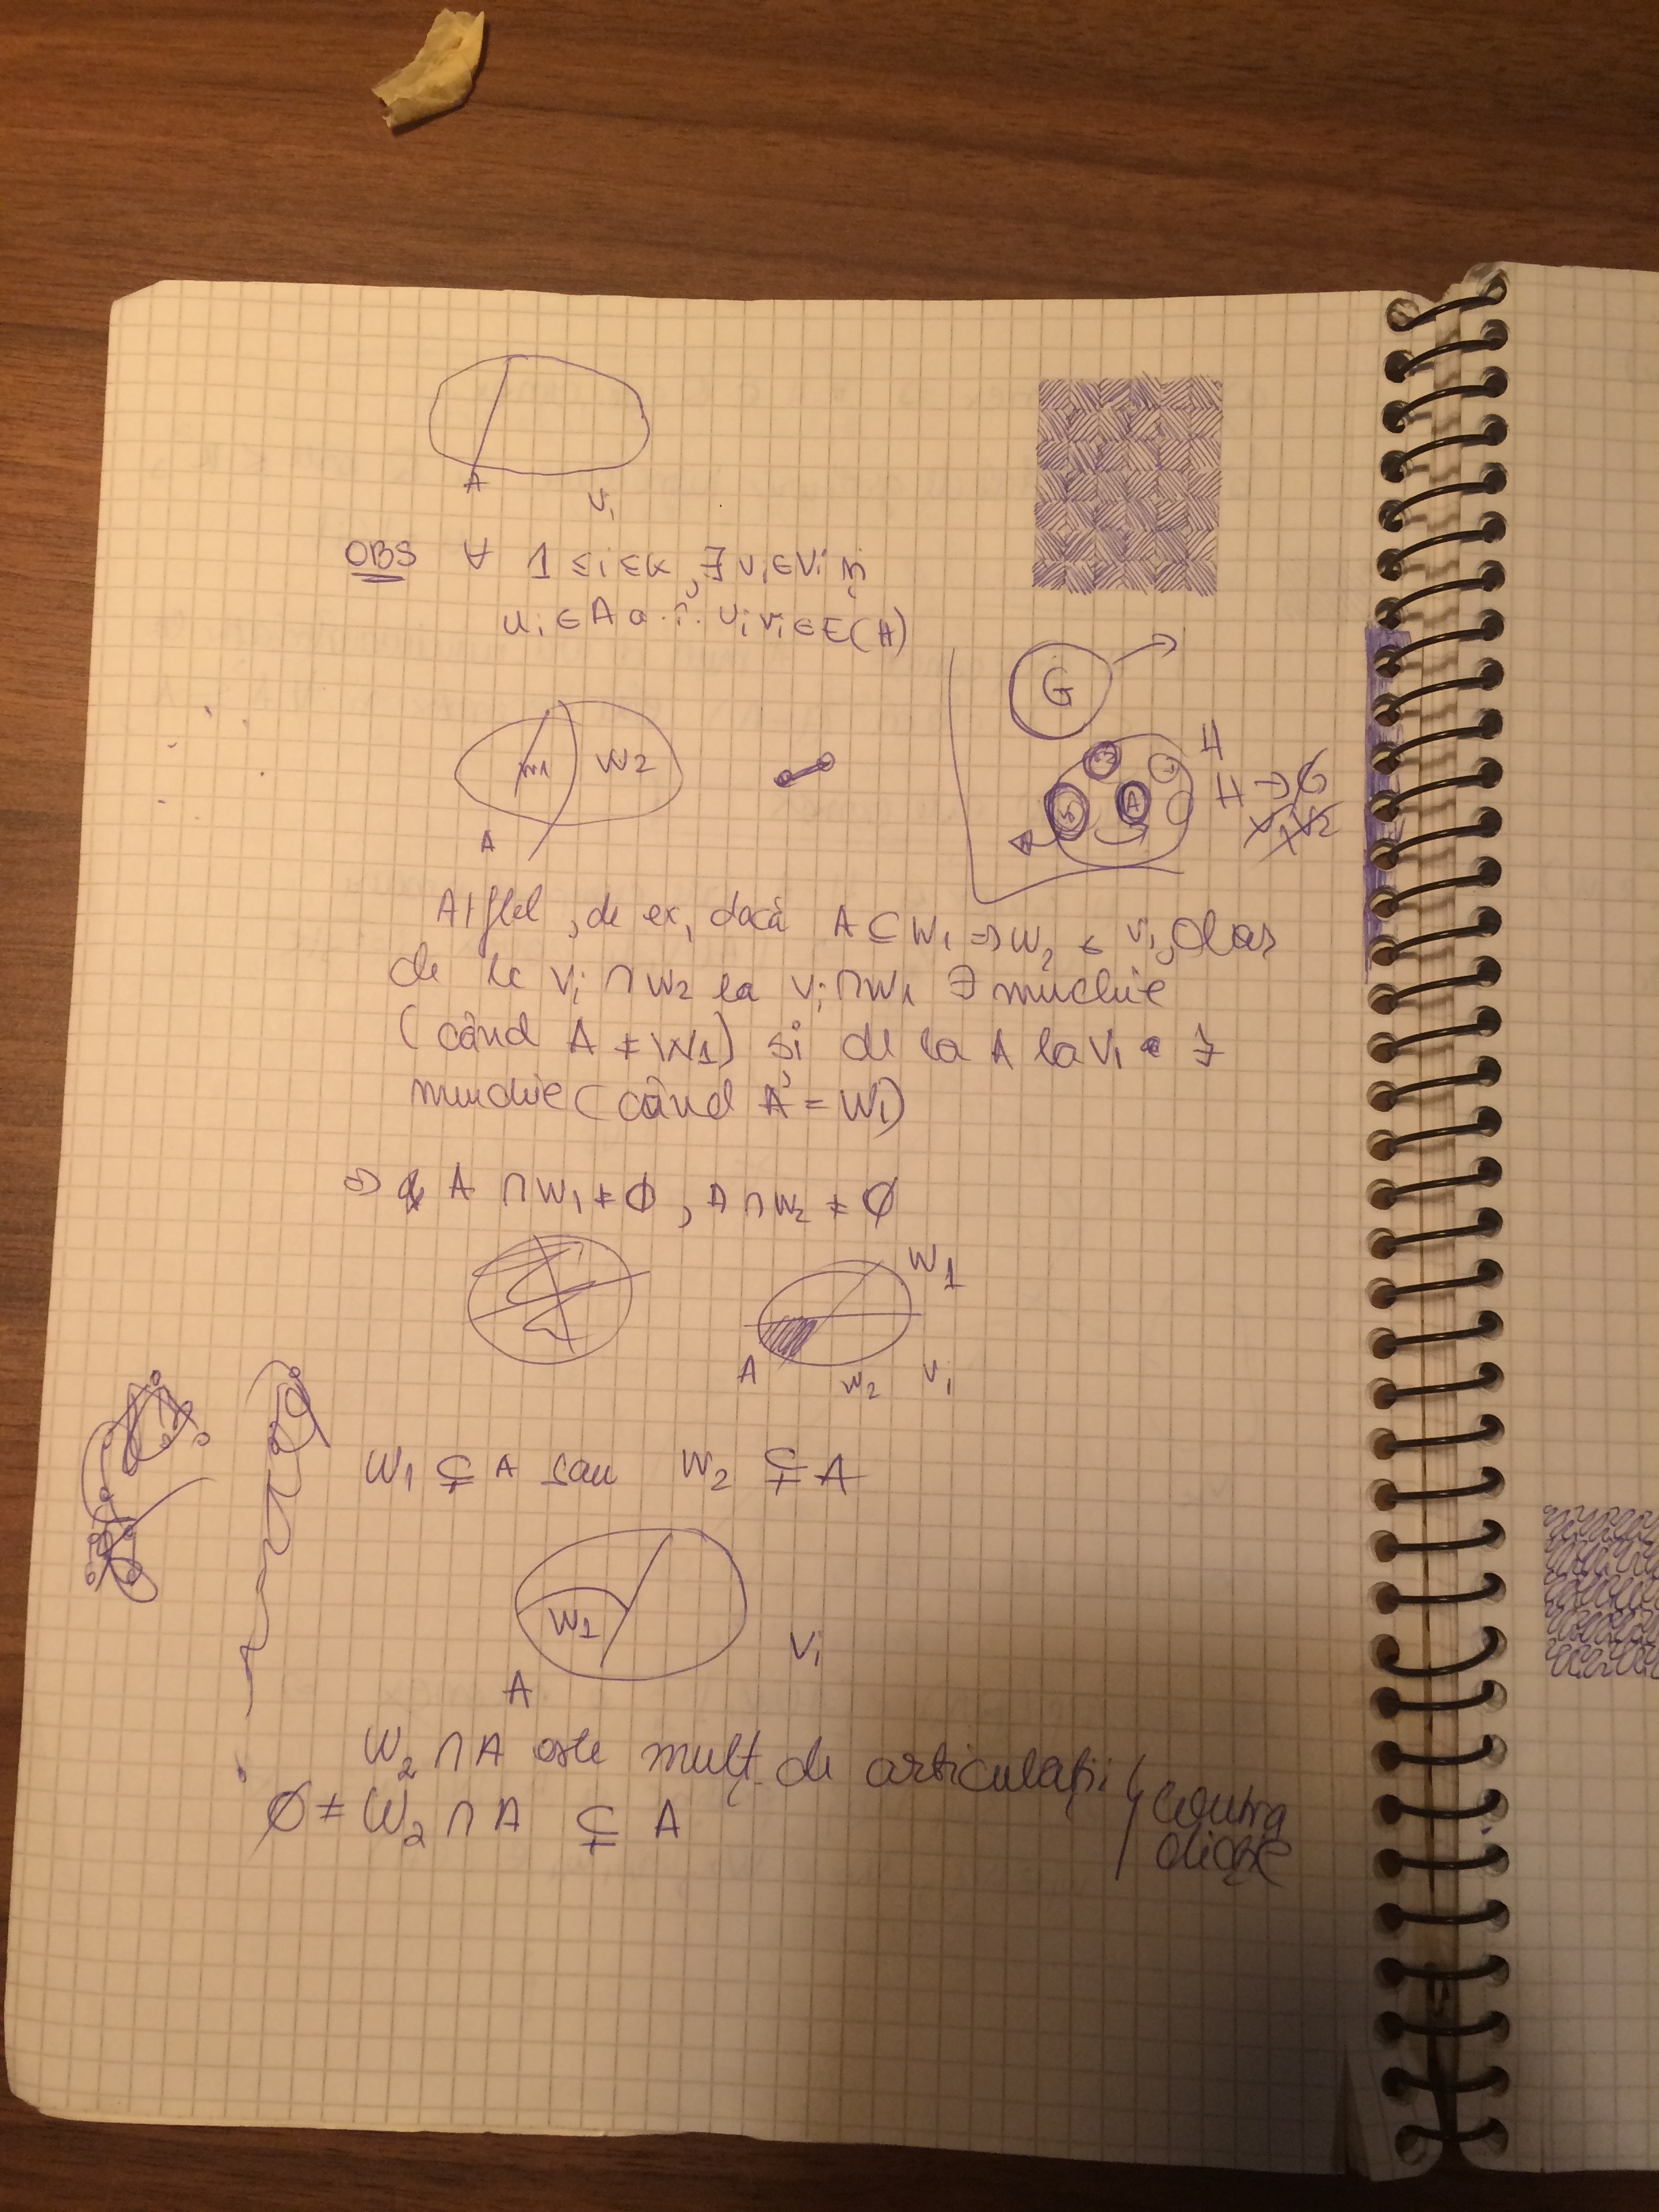 A
Vi
OBS ∀ 1 ≤ i ≤ k, ∃ vi ∈ Vi și
ui ∈ A a.î. uivi ∈ E(H)
G
H
H → G
A
W1 W2
A
Altfel, de ex, dacă A ⊆ W1 ⇒ W2 ⊆ Vi, dar
de la Vi ∩ W2 la Vi ∩ W1 ∃ muchie
(când A ≠ W1) și de la A la Vi ∃
muchie (când A = W1)
⇒ A ∩ W1 ≠ ∅, A ∩ W2 ≠ ∅
W1
A W2 Vi
W1 ⊊ A sau W2 ⊊ A
W1
Vi
A
W2 ∩ A este mulț. de articulații
∅ ≠ W2 ∩ A ⊊ A
contra
dicție